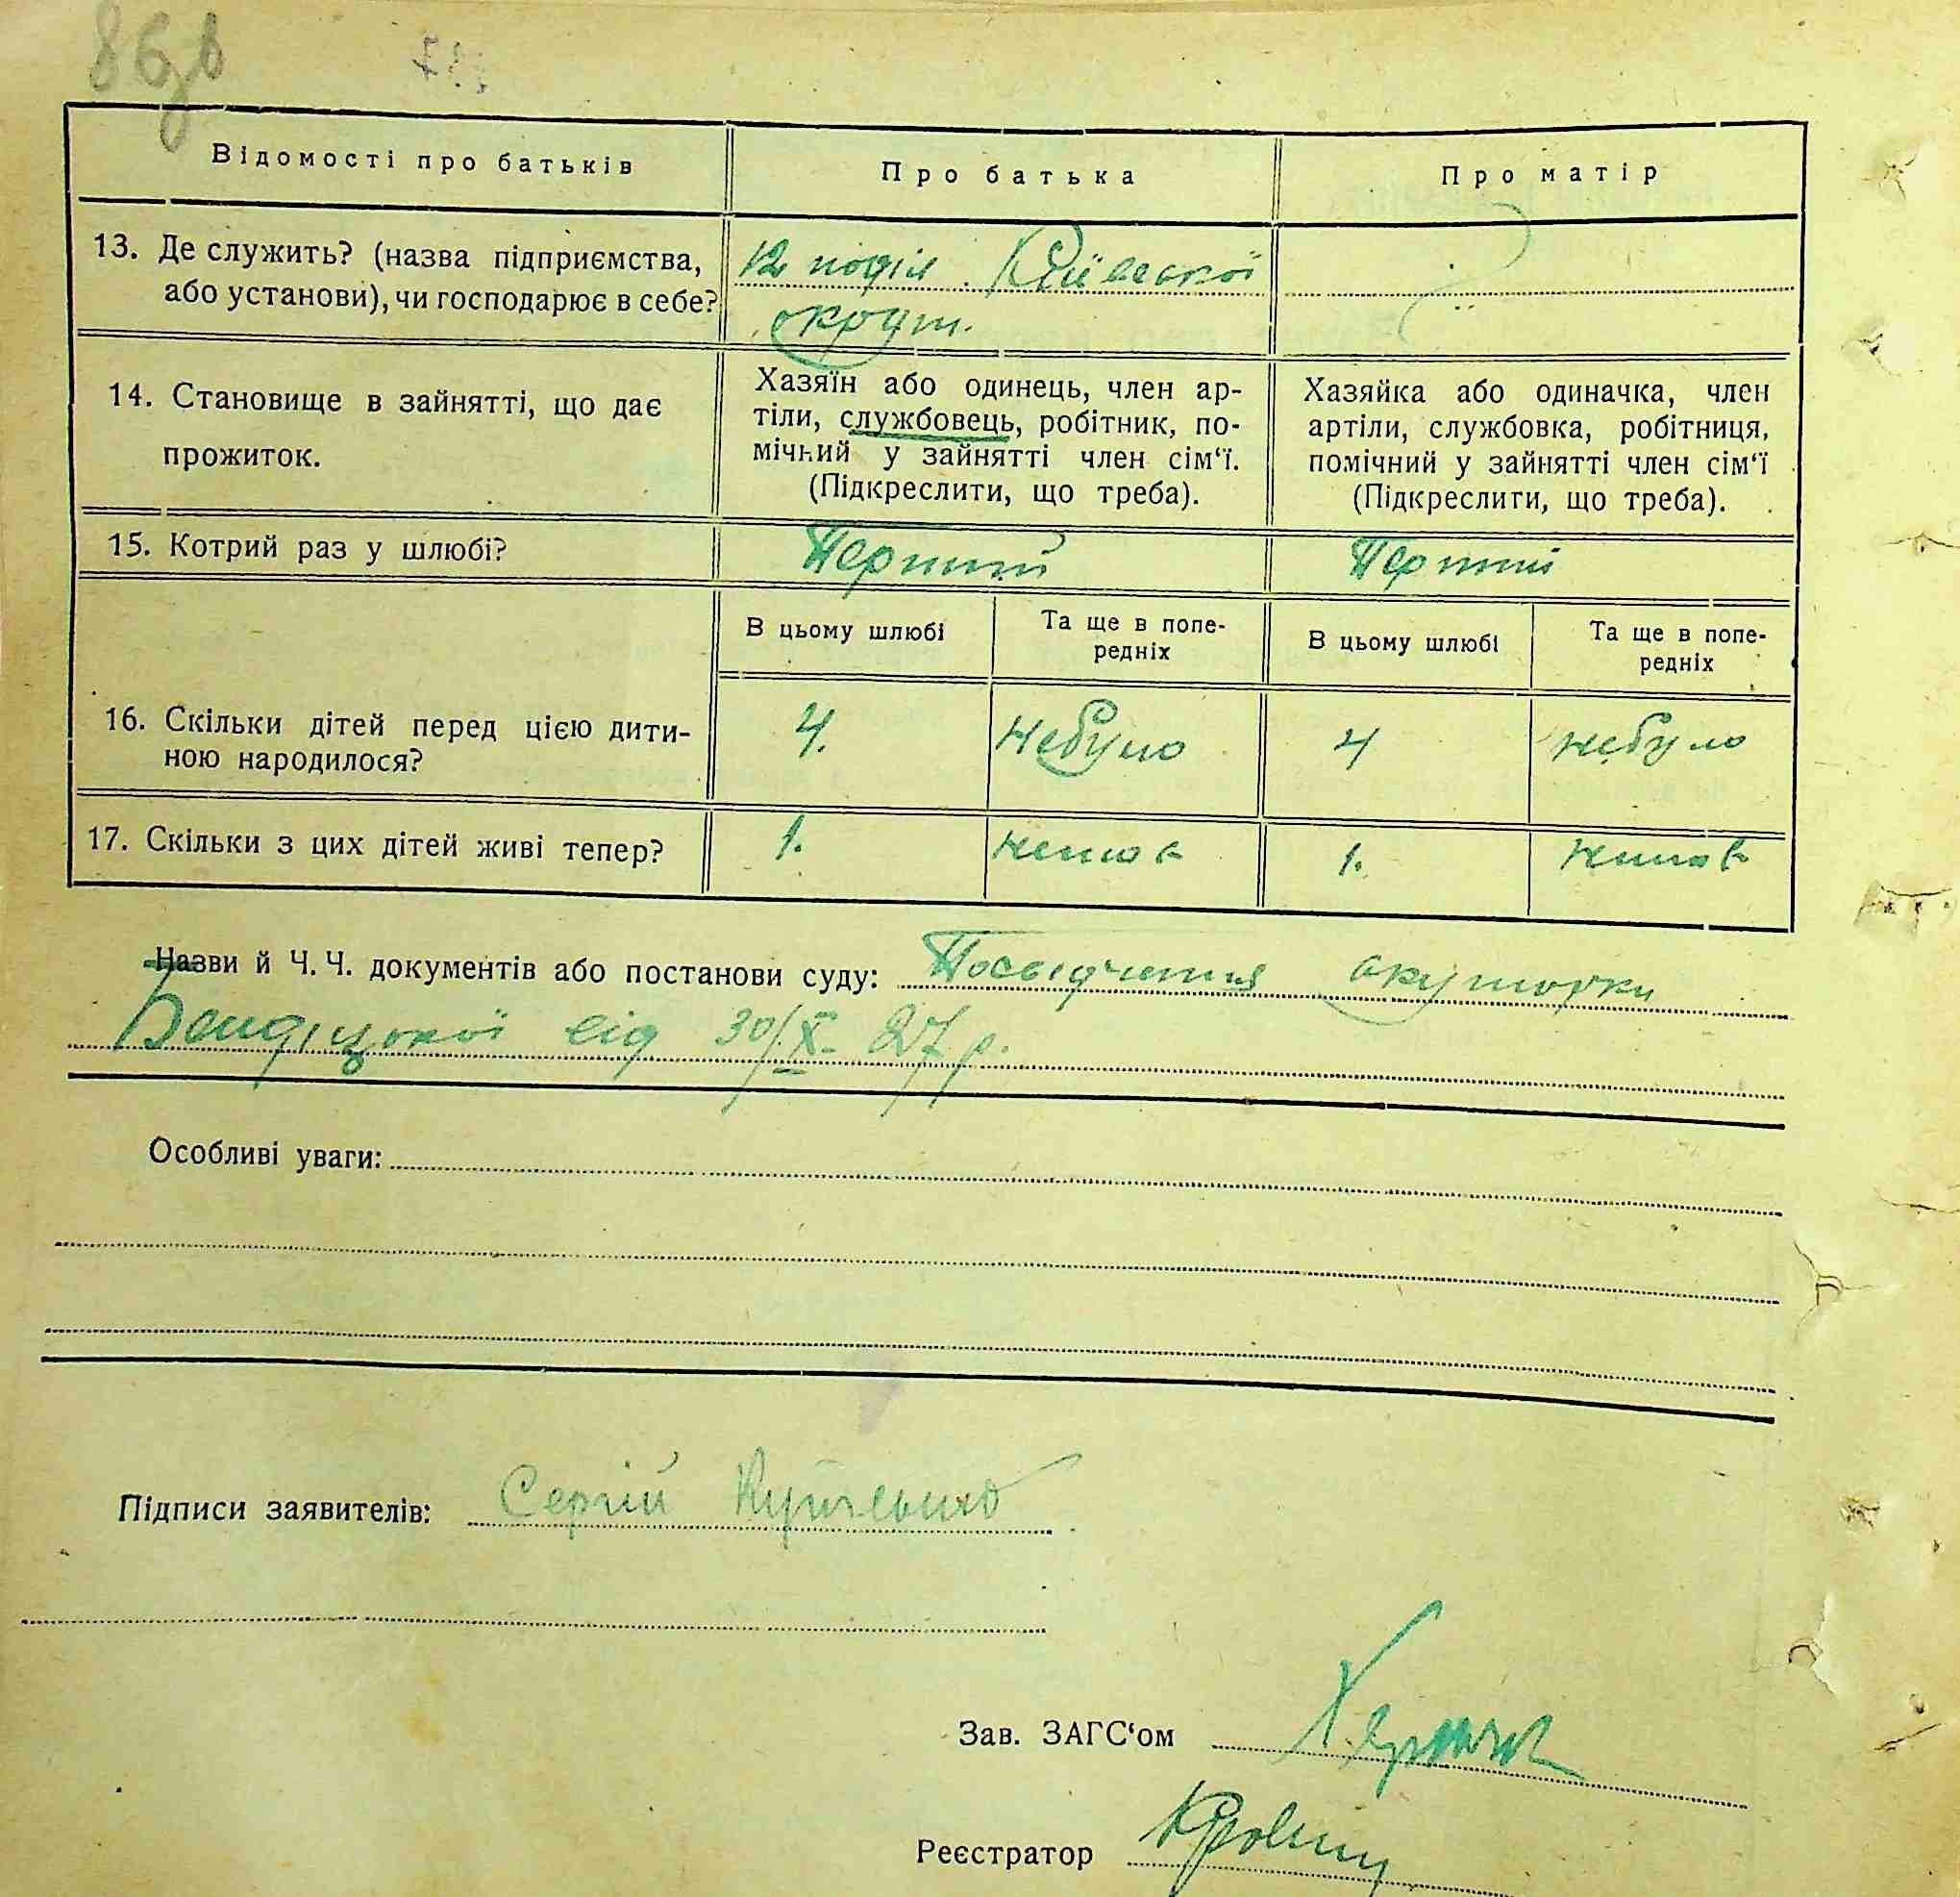 86
Відомості про батьків
Про батька
Про матір
13. Де служить? (назва підприємства,
або установи), чи господарює в себе?
12 поділ. Київської
округи.
14. Становище в зайнятті, що дає
прожиток.
Хазяїн або одинець, член ар-
тіли, службовець, робітник, по-
мічний у зайнятті член сім‘ї.
(Підкреслити, що треба).
Хазяйка або одиначка, член
артіли, службовка, робітниця,
помічний у зайнятті член сім‘ї
(Підкреслити, що треба).
15. Котрий раз у шлюбі?
Перший
Перший
В цьому шлюбі
Та ще в попе-
редніх
В цьому шлюбі
Та ще в попе-
редніх
16. Скільки дітей перед цією дити-
ною народилося?
4.
небуло
4
небуло
17. Скільки з цих дітей живі тепер?
1.
немає
1.
немає
Назви й Ч. Ч. документів або постанови суду: Посвідчення акушорки
від 30/X- 27 р.
Особливі уваги:
Підписи заявителів: Сергій
Зав. ЗАГС‘ом
Реєстратор